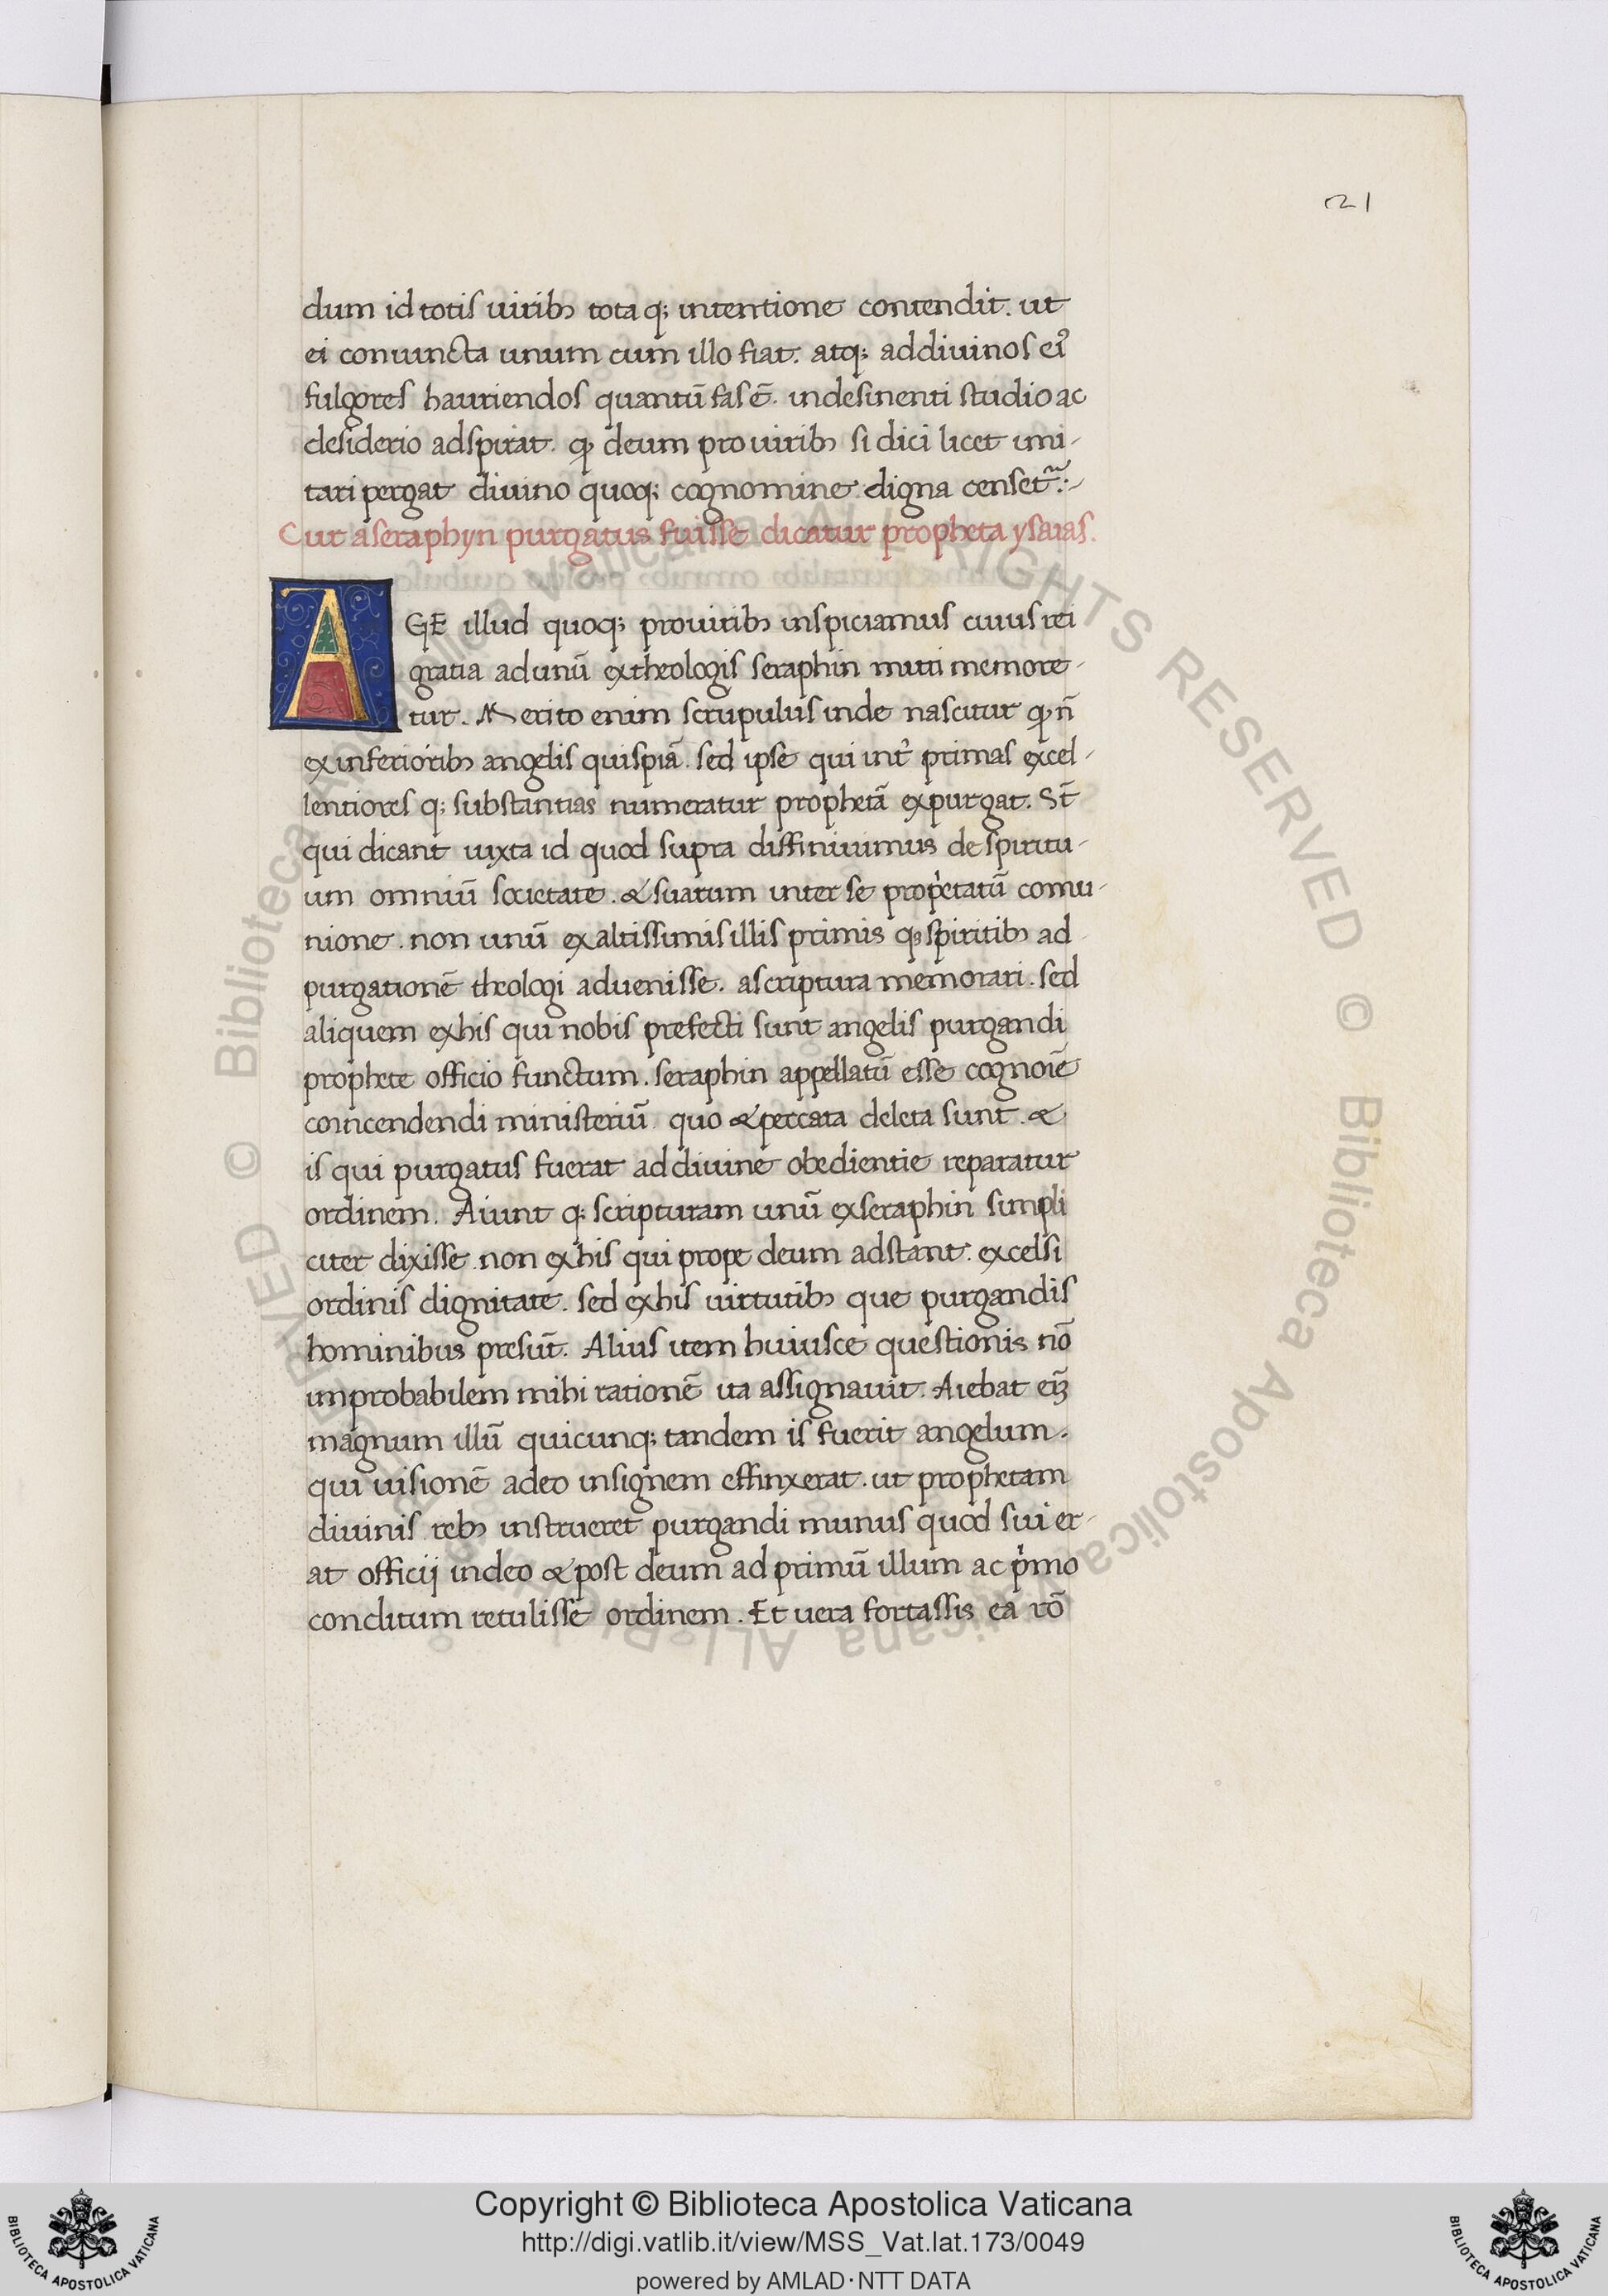 21
dum id totis uirib; tota q; intentione contendit. ut
ei coniuncta unum cum illo fiat. atq; addiuinos ei᾽
fulgores hauriendos quantū fas ē. indesinenti studio ac
desiderio adspirat. ꝙ deum pro uirib; si dici licet imi-
tari pergat diuino quoq; cognomine digna censet᷑:-
Cur a seraphyn purgatus fuisse dicatur propheta ysaias.
AGE illud quoq; prouirib; inspiciamus cuius rei
gratia ad unū ex theologis seraphin mitti memore-
tur. Merito enim scrupulus inde nascitur ꝙ n̄
ex inferiorib; angelis quispiā. sed ipse qui int᾽ primas excel-
lentiores q; substantias numeratur prophetā expurgat. St̄
qui dicant iuxta id quod supra diffiniuimus de spiritu-
um omniū societate. & suarum inter se prop'etatū comu-
nione. non unū ex altissimis illis primis q; spiritib; ad
purgationē theologi aduenisse. a scriptura memorari. sed
aliquem ex his qui nobis prefecti sunt angelis purgandi
prophete officio functum. seraphin appellatū esse cognoīē
coincendendi ministeriū quo & peccata deleta sunt. &
is qui purgatus fuerat ad diuine obedientie reparatur
ordinem. Aiunt q; scripturam unū ex seraphin simpli
citer dixisse. non ex his qui prope deum adstant. excelsi
ordinis dignitate. sed ex his uirtutib; que purgandis
hominibus presūt. Alius item huiusce questionis nō
improbabilem mihi rationē ita assignauit. Aiebat eīꝫ
magnum illū quicunq; tandem is fuerit angelum.
qui uisionē adeo insignem effinxerat. ut prophetam
diuinis reb; instrueret purgandi munus quod sui er-
at officij indeo & post deum ad primū illum ac p'mo
conditum retulisse ordinem. Et uera fortassis ea rō
© Biblioteca Apostolica Vaticana ALL RIGHTS RESERVED © Biblioteca Apostolica Vaticana ALL RIGHTS RESERVED
Copyright © Biblioteca Apostolica Vaticana
http://digi.vatlib.it/view/MSS_Vat.lat.173/0049
powered by AMLAD·NTT DATA
BIBLIOTECA APOSTOLICA VATICANA
BIBLIOTECA APOSTOLICA VATICANA